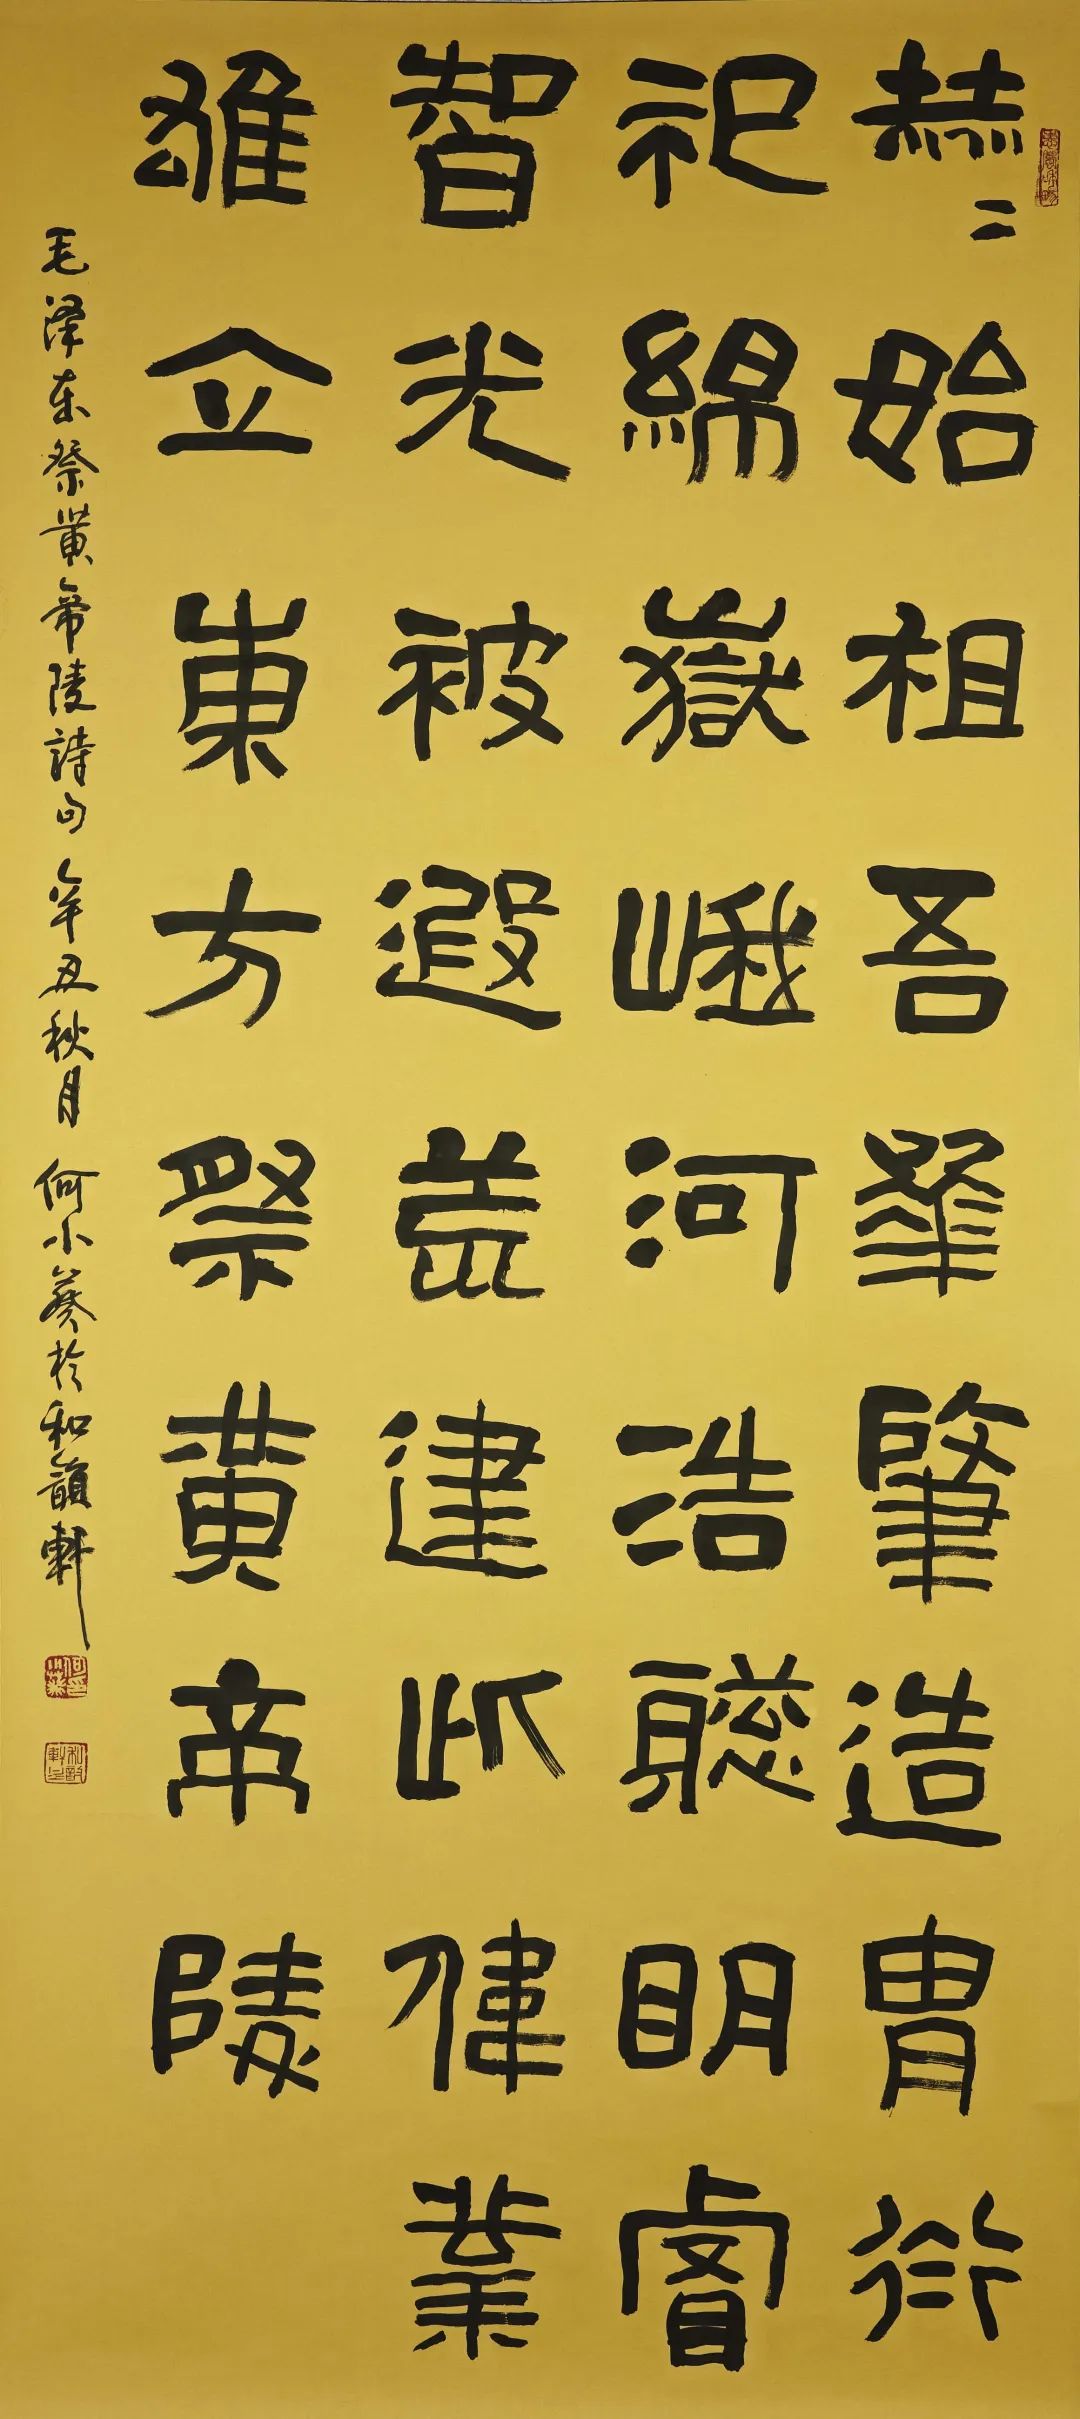 赫々始祖吾華肇造胄衍
祀綿嶽峨河浩聰明睿
智光被遐荒建此偉業
雄立東方祭黃帝陵
毛澤東祭黃帝陵詩句 辛丑秋月 何小葵於和韻軒